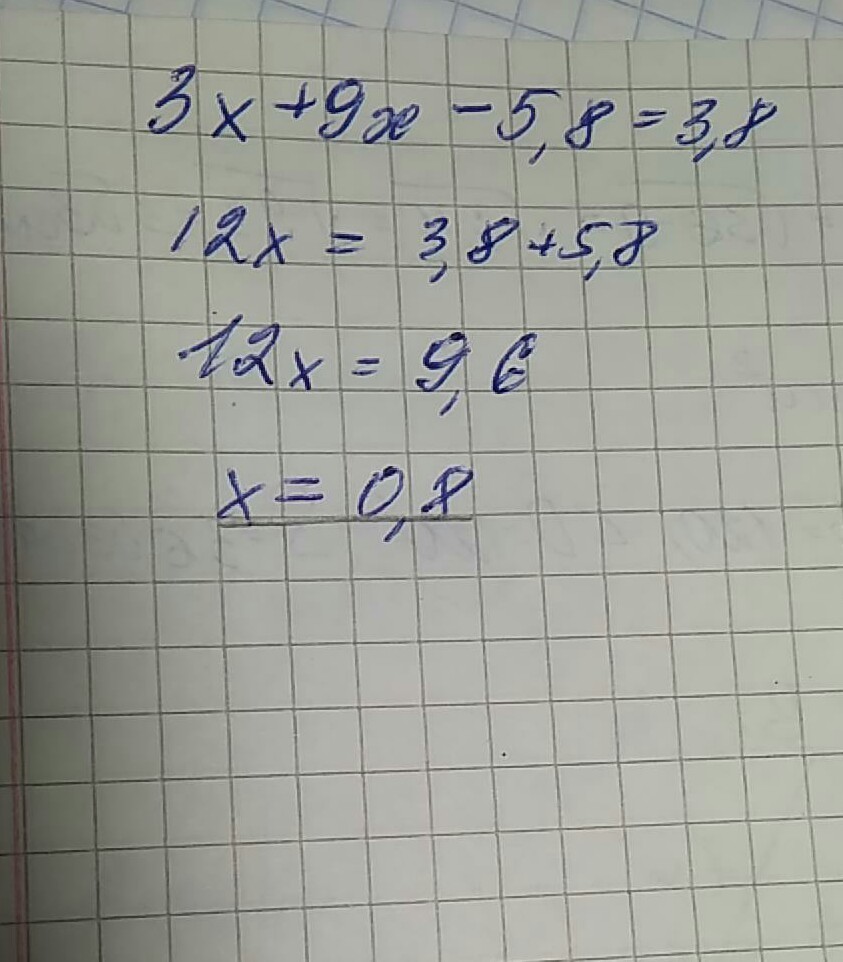 3x + 9x - 5,8 = 3,8
12x = 3,8 + 5,8
12x = 9,6
x = 0,8